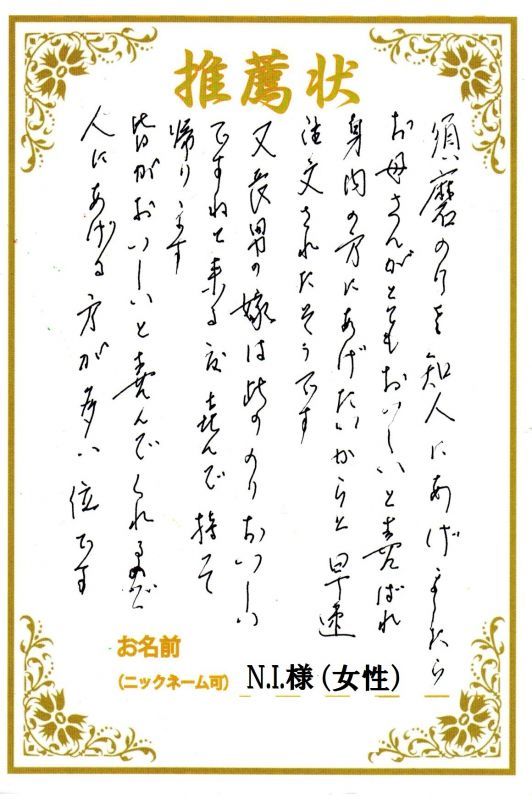 推薦状
須磨のりを知人にあげましたら
お母さんがとてもおいしいと喜ばれ
身内の方にあげたいからと早速
注文されたそうです
又長男の嫁は此ののりおいしい
ですねと来る度喜んで持って
帰ります
皆がおいしいと喜んでくれるので
人にあげる方が多い位です
お名前
(ニックネーム可) N.I.様(女性)